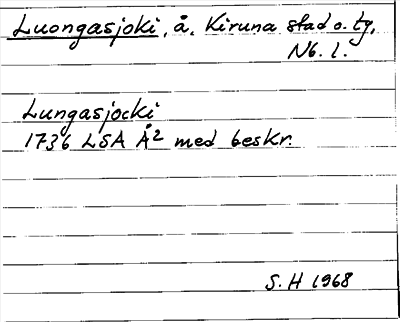 Luongasjoki, å, Kiruna stad o. tg,
Nb. l.
Lungasjocki
1736 LSA Å2 med beskr.
S. H 1968